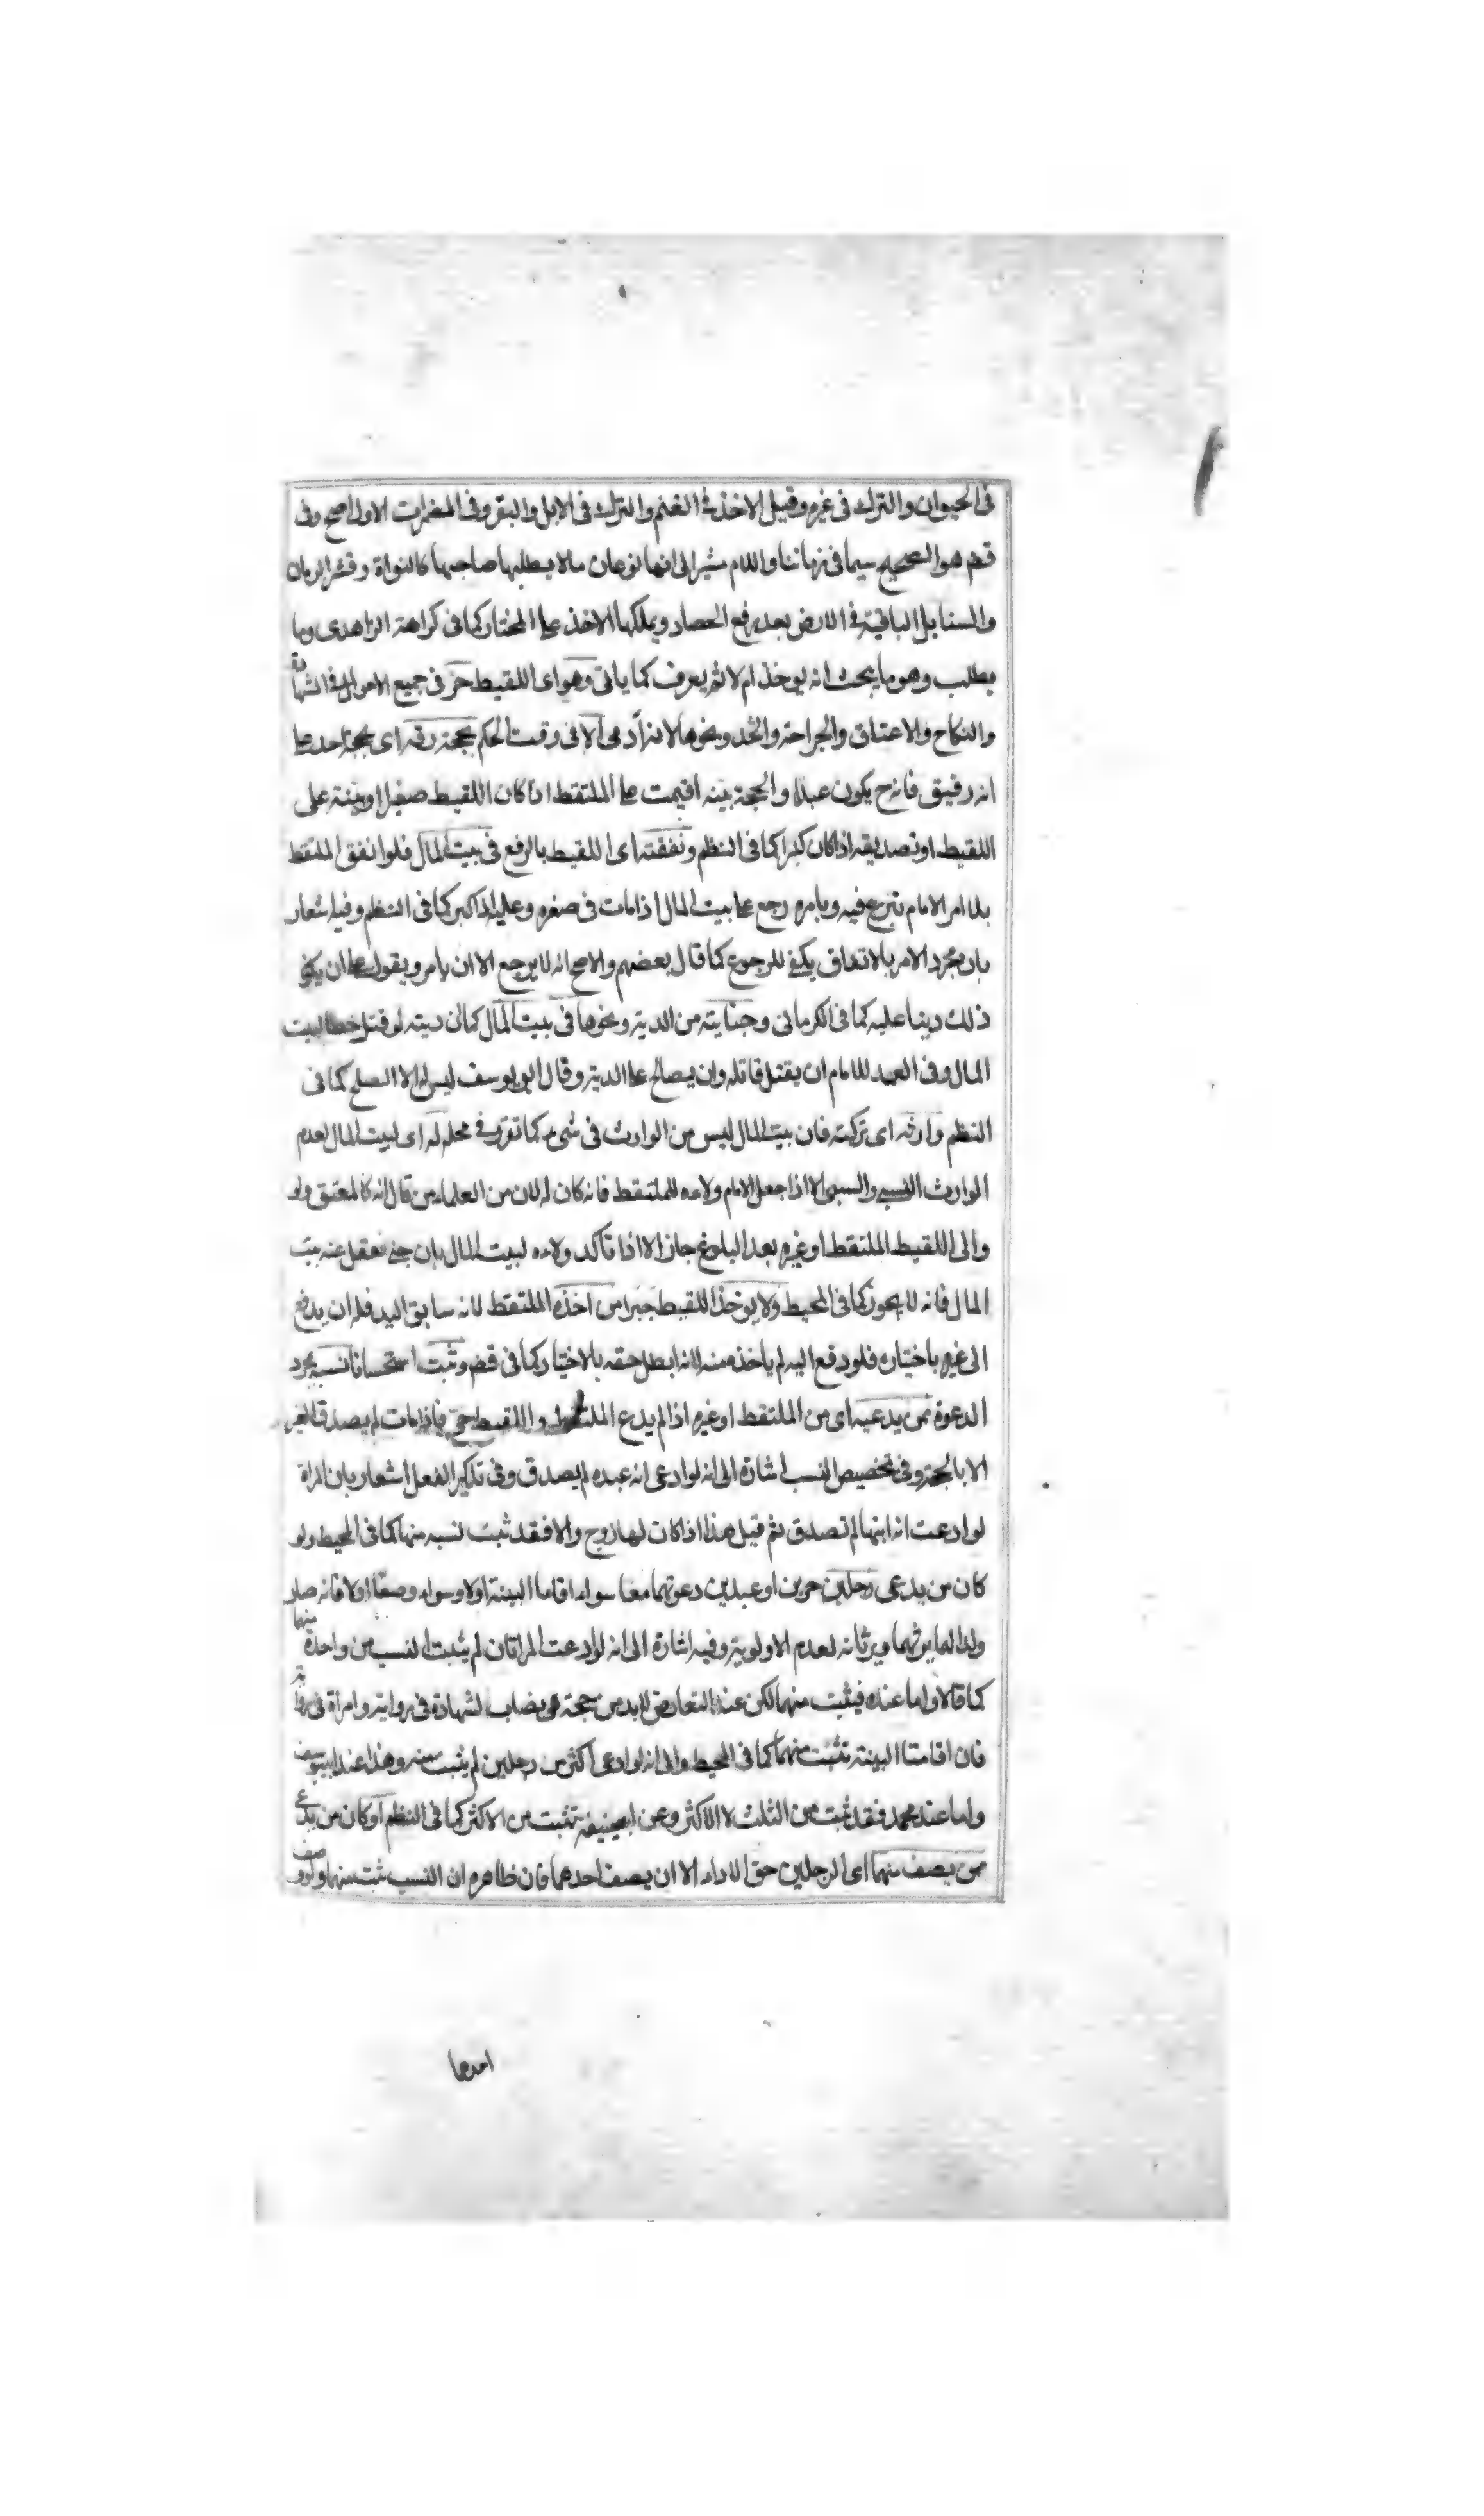 فى الحيوان والترك فى غيره وقيل الاخذ فى الغنم والترك فى الابل والبقر وفى المضمرات الاول اصح وفى
قضم هو الصحيح سيما فى زماننا واللام مشير الى انها نوعان ما لا يطلبها صاحبها كالنواة وقشر الرمان
والسنابل الباقية فى الارض بعد رفع الحصاد ويملكها الاخذ على المختار كما فى كراهة الزاهدى وما
يطلب وهو ما يبحث انه يوخذ ام لا ثم يعرف كما ياتى وهو اى اللقيط حر فى جميع الاموال فى الشهادة
والنكاح والاعتاق والجراحة والحد ونحوها لانه آدمى الا فى وقت الحكم بحجة رقه اى بحجة احد على
انه رقيق فانه ح يكون عبدا والحجة بينة اقيمت على الملتقط اذا كان اللقيط صغيرا او بينة على
اللقيط او تصديقه اذا كان كبيرا كما فى النظم ونفقته اى اللقيط بالرفع فى بيت المال فلو انفق الملتقط
بلا امر الامام تبرع فيه وبامره رجع على بيت المال اذا مات فى صغره وعليه اذا كبر كما فى النظم وفيه اشعار
بان مجرد الامر بالانفاق يكفى للرجوع كما قال بعضهم والاصح انه لا يرجع الا ان يامر ويقول على ان يكون
ذلك دينا عليه كما فى الكرمانى وجنايته من الدية ونحوها فى بيت المال كما ان ديته لو قتل خطا لبيت
المال وفى العمد للامام ان يقتل قاتله وان يصالح على الدية وقال ابو يوسف ليس له الا الصلح كما فى
النظم وارثه اى تركته فان بيت المال ليس من الوارث فى شىء كما تقرر فى محله له اى لبيت المال لعدم
الوارث النسبى والسببى الا اذا جعل الامام ولاءه للملتقط فانه كان له لان من العلماء من قال انه كالمعتق ولو
والى اللقيط الملتقط او غيره بعد البلوغ جاز الا اذا تاكد ولاءه لبيت المال بان جنى فعقل عنه بيت
المال فانه لا يجوز كما فى المحيط ولا يوخذ اللقيط جبرا من اخذه الملتقط لانه سابق اليد فله ان يدفع
الى غيره باختياره فلو دفع اليه لم ياخذه منه لانه ابطل حقه بالاختيار كما فى قضم وثبت استحسانا نسبه بمجرد
الدعوة ممن يدعيه اى من الملتقط او غيره اذا لم يدع الملتقط واللقيط حى فاذا مات لم يصدق الغير
الا بالحجة وفى تخصيص النسب اشارة الى انه لو ادعى انه عبده لم يصدق وفى تذكير الفعل اشعار بان المراة
لو ادعت انه ابنها لم تصدق ثم قيل هذا اذا كان لها زوج والا فقد ثبت نسبه منها كما فى المحيط ولو
كان من يدعى رجلين حرين او عبدين دعوتهما معا سواء اقاما البينة او لا وسواء وصفا او لا فانه صار
ولدا لهما يرثهما ويرثانه لعدم الاولوية وفيه اشارة الى انه لو ادعت المراتان لم يثبت النسب من واحدة منهما
كما قالا واما عنده فيثبت منهما لكن عند التعارض لا بد من حجة هى نصاب الشهادة فى رواية وامراة فى رواية
فان اقامتا البينة تثبت منهما كما فى المحيط والى انه لو ادعى اكثر من رجلين لم يثبت منه وهذا عند ابى يوسف
واما عند محمد فقد ثبت من الثلث لا الاكثر وعن ابى حنيفة تثبت من الاكثر كما فى النظم او كان من يدعى
من يصف منهما اى الرجلين حق الاداء الا ان يصف احدهما فان ظاهره ان النسب ثبت منهما ولو وصف
احدهما